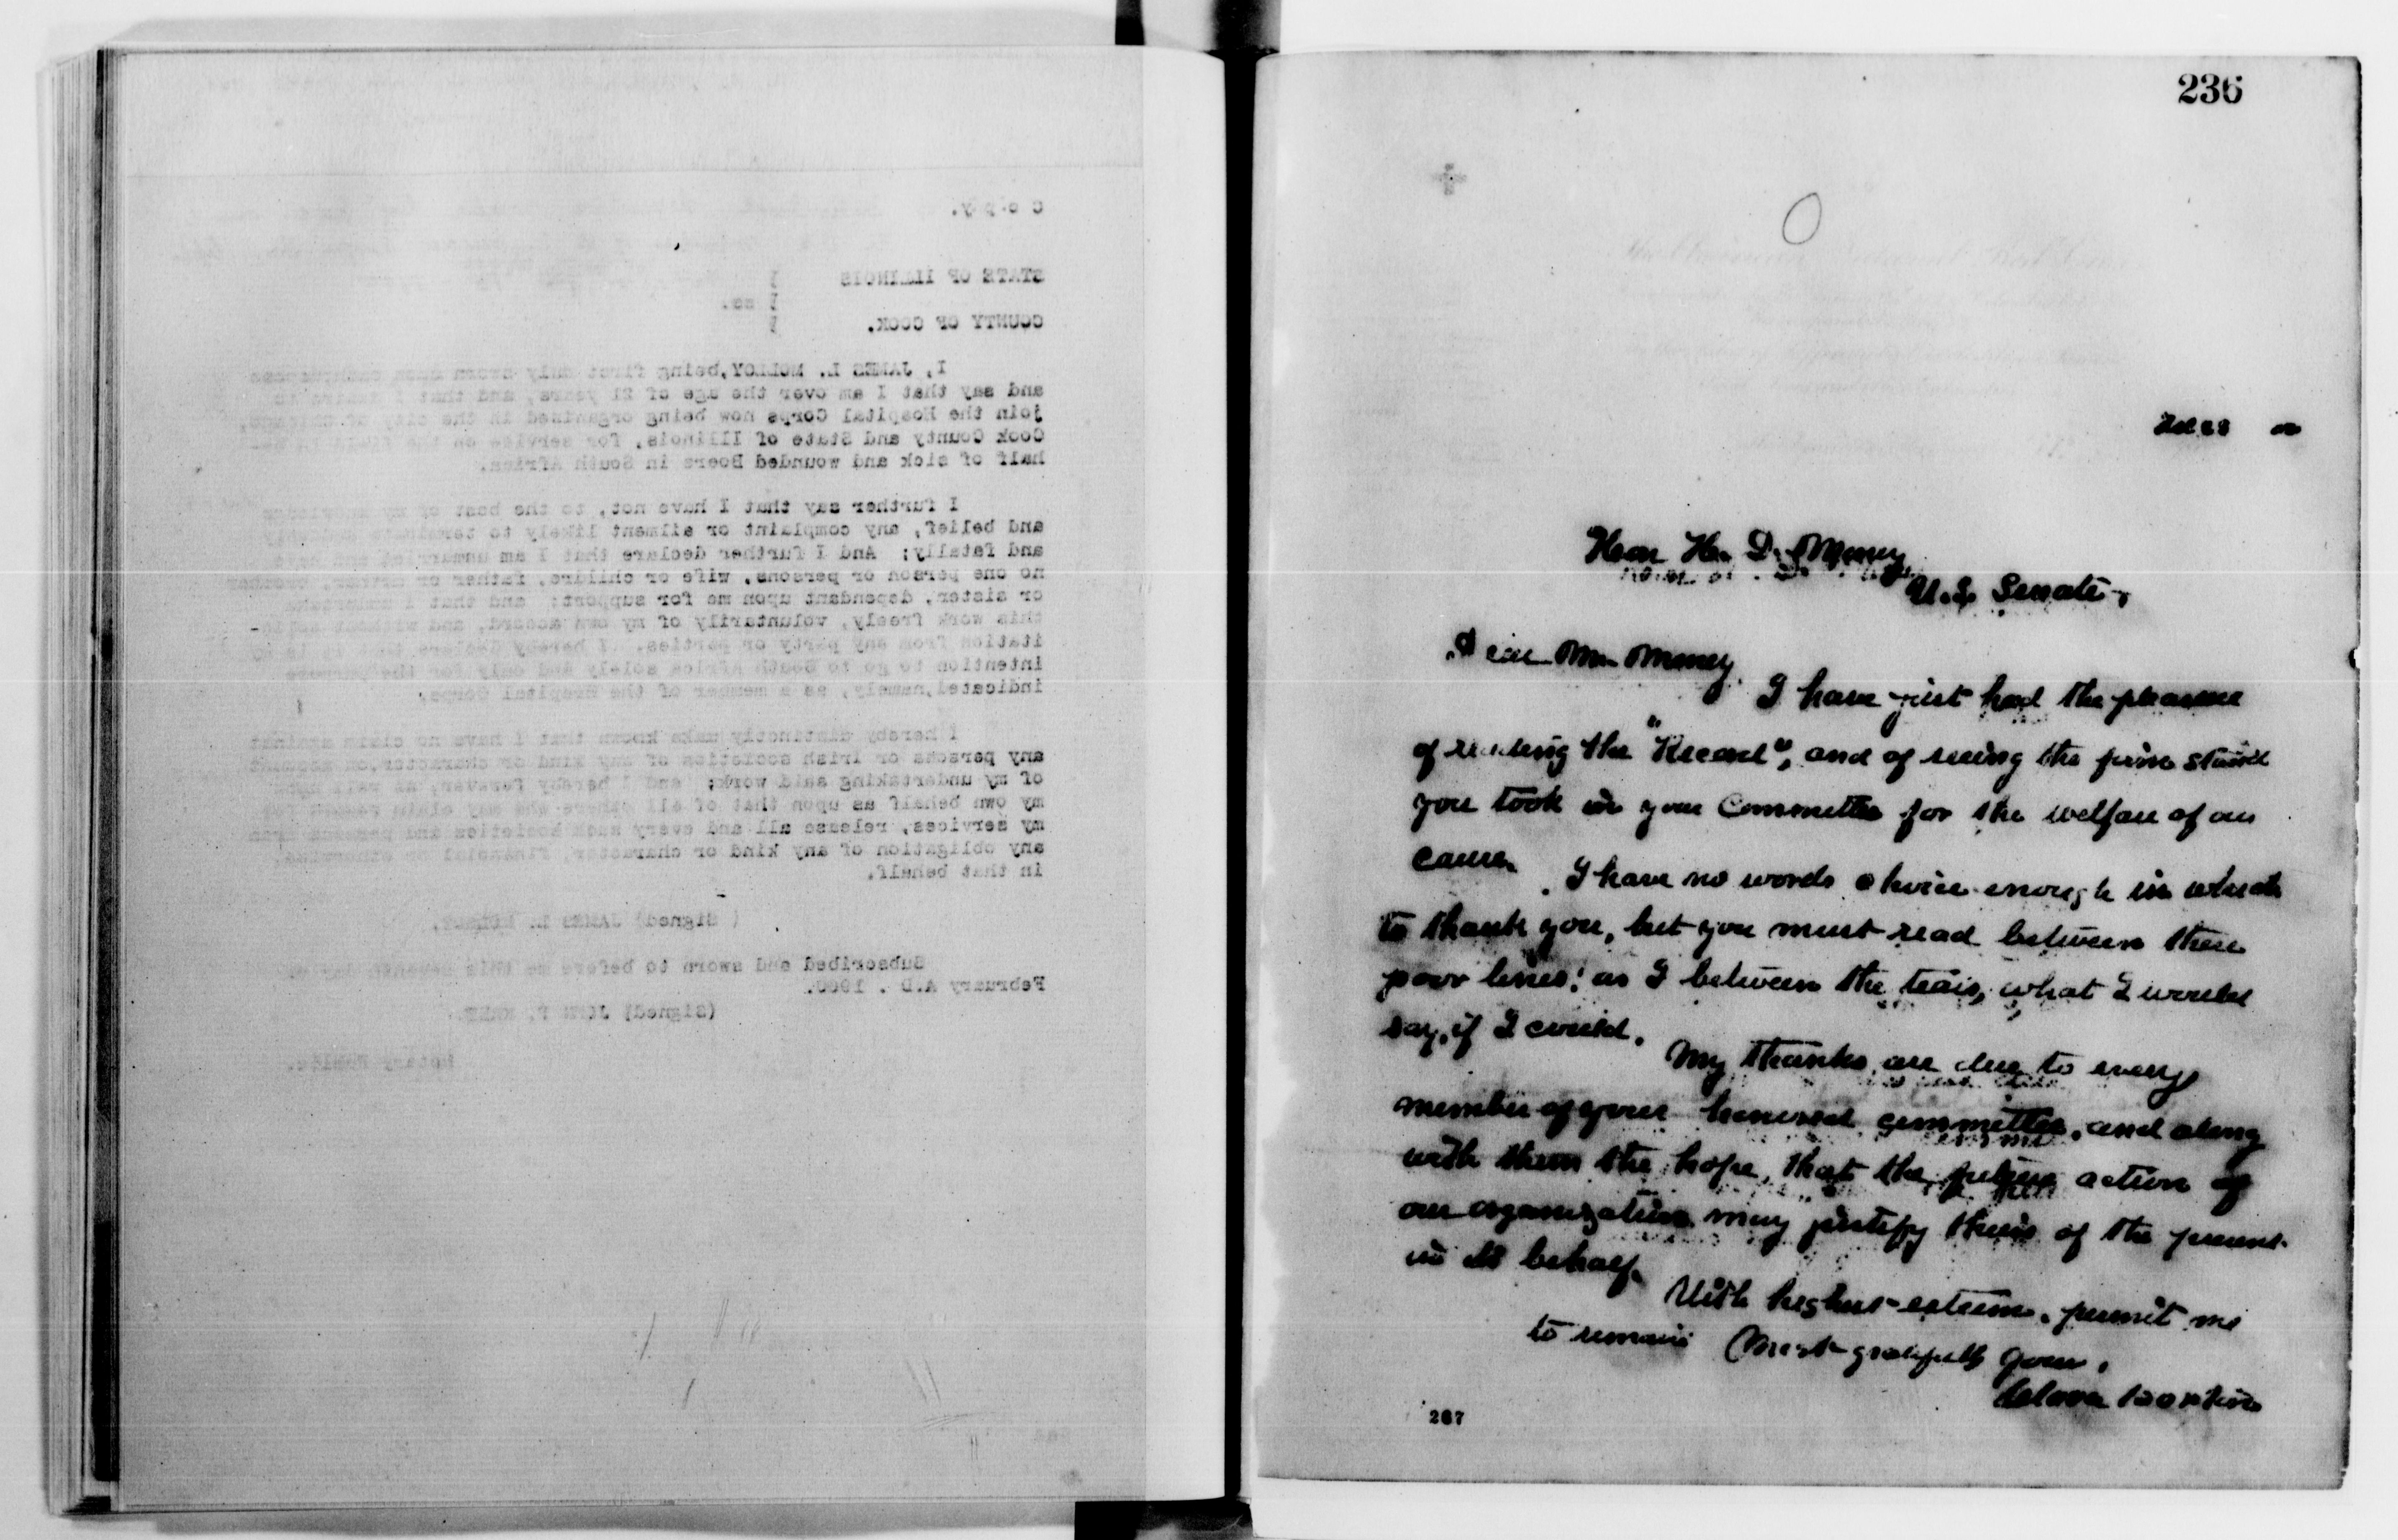 Copy.
STATE OF ILLINOIS )
) ss.
COUNTY OF COOK. )
I, JAMES L. MOLLOY, being first duly sworn
and say that I am over the age of 21 years, and that I desire to
join the Hospital Corps now being organized in the city of Chicago,
Cook County and State of Illinois, for service on the
half of sick and wounded Boers in South Africa.
I further say that I have not, to the best of my
and belief, any complaint or ailment likely to terminate
and fatally; And I further declare that I am unmarried
no one person or persons, wife or children, father or mother, brother
or sister, dependant upon me for support; and that I undertake
this work freely, voluntarily of my own accord, and without
itation from any party or parties. I hereby declare that it is my
intention to go to South Africa solely and only for the purpose
indicated, namely, as a member of the Hospital Corps.
I hereby distinctly make known that I have no claim against
any persons or Irish societies of any kind or character, on account
of my undertaking said work; and I hereby forever, as well upon
my own behalf as upon that of all others who may claim
my services, release all and every such societies and persons from
any obligation of any kind or character, financial or otherwise
in that behalf.
(Signed) JAMES L. MOLLOY.
Subscribed and sworn to before me this seventh day of
February A.D. 1900.
(Signed) JOHN F.
Notary Public.
236
Hon H. D. Money
U.S. Senate,
Dear Mr Money.
I have just had the pleasure
of reading the "Record", and of seeing the firm stand
you took in your Committee for the welfare of our
cause. I have no words choice enough in which
to thank you, but you must read between these
poor lines, as I between the tears, what I would
say, if I could.
My thanks are due to every
member of your honored committee, and along
with them the hope, that the future action of
our organization may justify theirs of the present
in its behalf.
With highest esteem, permit me
to remain Most gratefully yours,
Clara Barton
267